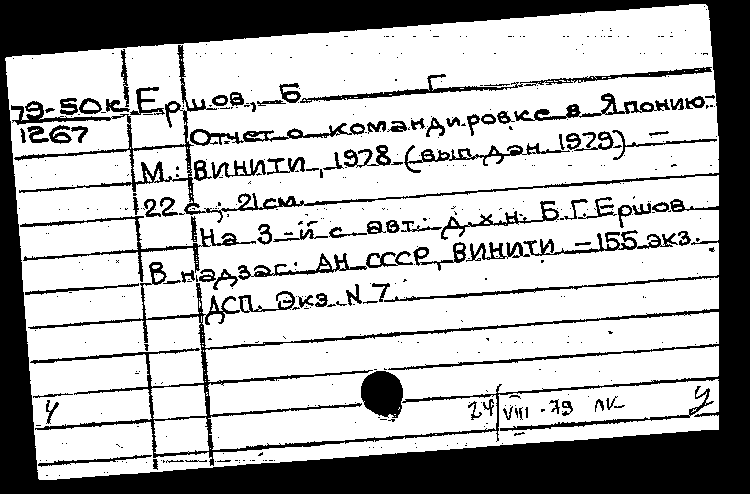 79-50к Ершов, Б Г
1267 Отчет о командировке в Японию.
М.: ВИНИТИ, 1978 (вып. дан. 1979). —
22 с.; 21 см.
На 3-й с авт.: д.х.н. Б.Г. Ершов.
В надзаг.: АН СССР, ВИНИТИ. — 155 экз.
ДСП. Экз. N 7.
24 VIII-79 ЛК У